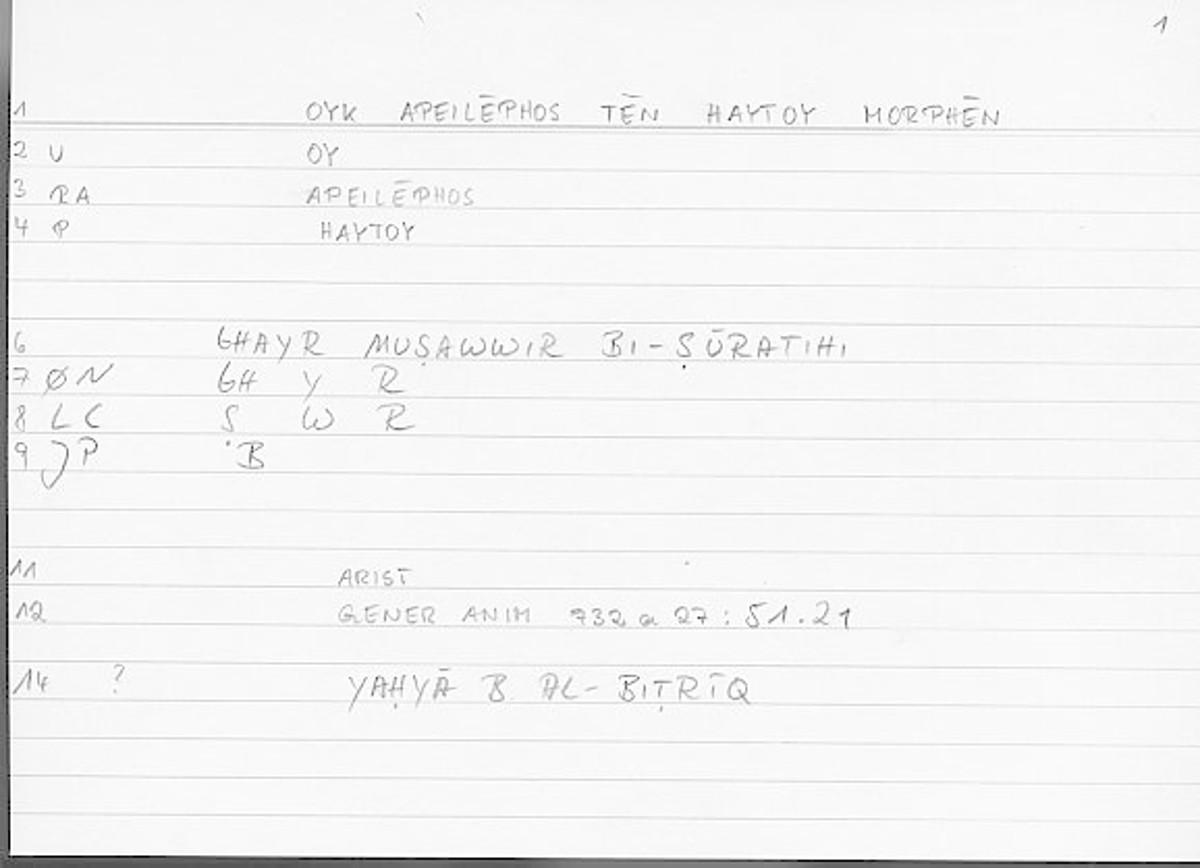 1
1 OYK APEILĒPHOS TĒN HAYTOY MORPHĒN
2 U OY
3 RA APEILĒPHOS
4 P HAYTOY
6 GHAYR MUṢAWWIR BI-ṢŪRATIHI
7 ØN GH Y R
8 LC Ṣ W R
9 JP B
11 ARIST
12 GENER ANIM 732 a 27 : 51.21
14 ? YAḤYĀ B AL-BIṬRĪQ